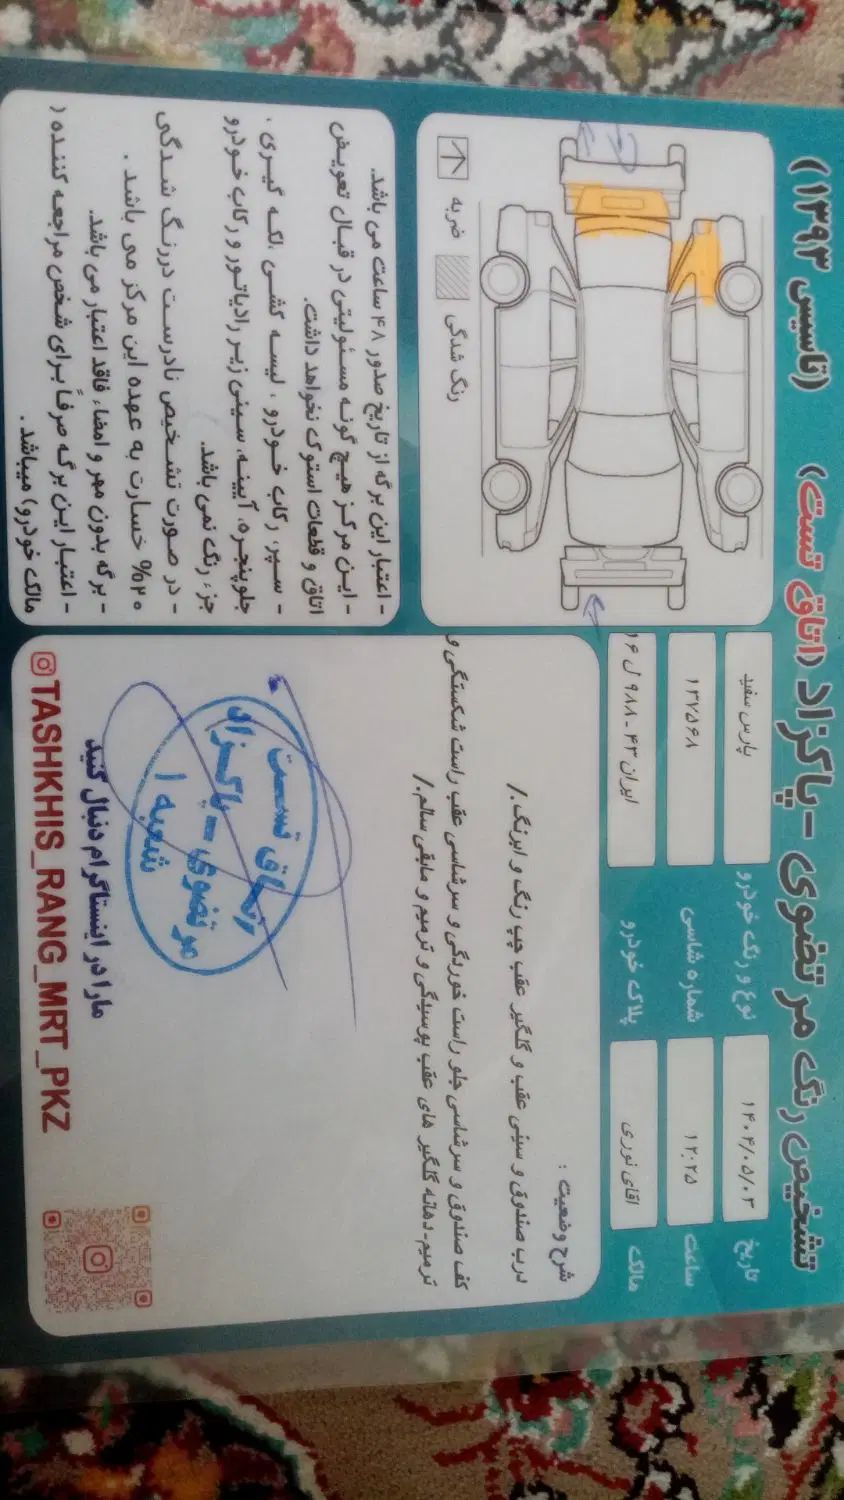 تشخیص رنگ مرتضوی - پاکزاد (اتاق تست) (تاسیس ۱۳۹۳)
تاریخ ۱۴۰۴/۰۵/۰۳ نوع و رنگ خودرو پارس سفید
ساعت ۱۲:۲۵ شماره شاسی ۱۳۷۵۶۸
مالک اقای نوری پلاک خودرو ایران ۴۳ - ۹۸۸ ل ۱۶
شرح وضعیت :
درب صندوق و سینی عقب و گلگیر عقب چپ رنگ و ابرنگ./
کف صندوق و سرشاسی جلو راست خوردگی و سرشاسی عقب راست شکستگی و
ترمیم-دهانه گلگیر های عقب پوسیدگی و ترمیم و مابقی سالم./
اتاق تست
مرتضوی - پاکزاد
شعبه ۱
مارا در اینستاگرام دنبال کنید
@TASHKHIS_RANG_MRT_PKZ
ضربه
رنگ شدگی
- اعتبار این برگه از تاریخ صدور ۴۸ ساعت می باشد.
- این مرکز هیچ گونه مسئولیتی در قبال تعویض
اتاق و قطعات استوک نخواهد داشت.
- سپر، رکاب خودرو ، لیسه کشی ،لکه گیری ،
جلوپنجره، آیینه، سینی زیر رادیاتور و رکاب خودرو
جزء رنگ نمی باشد.
- در صورت تشخیص نادرست دررنگ شدگی
۲۰% خسارت به عهده این مرکز می باشد .
- برگه بدون مهر و امضاء فاقد اعتبار می باشد.
- اعتبار این برگه صرفاً برای شخص مراجعه کننده (
مالک خودرو) میباشد .